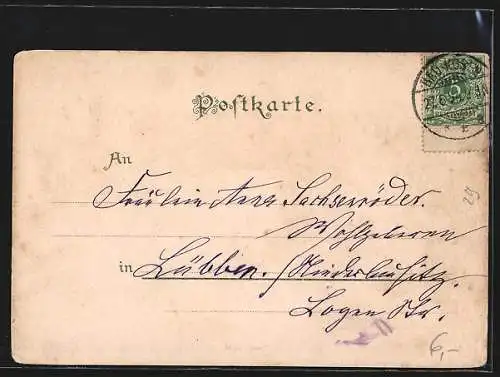 Postkarte.
An
Fräulein Anna Sachsenröder.
Wohlgeboren
in Lübben. /Niederlausitz.
Logen Str.
29
6,-